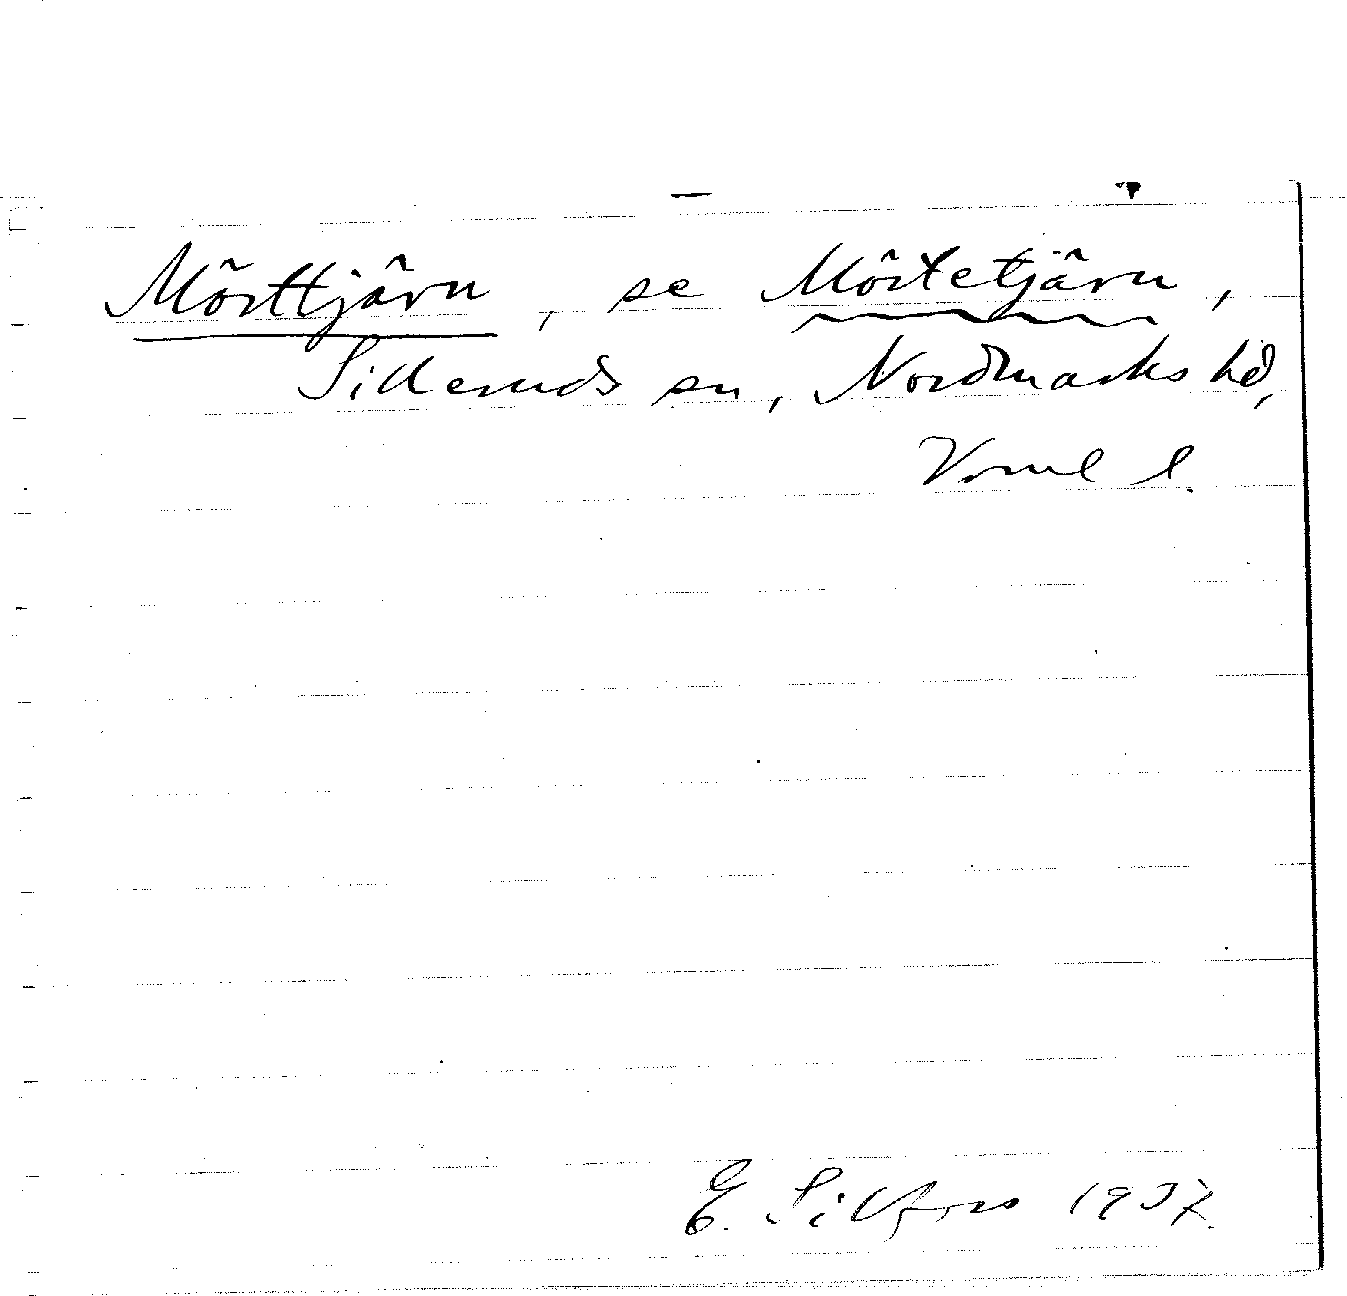 Mörttjärn, se Mörtetjärn,
Silleruds sn, Nordmarks hd,
Verml l.
E. Silfors 1937.